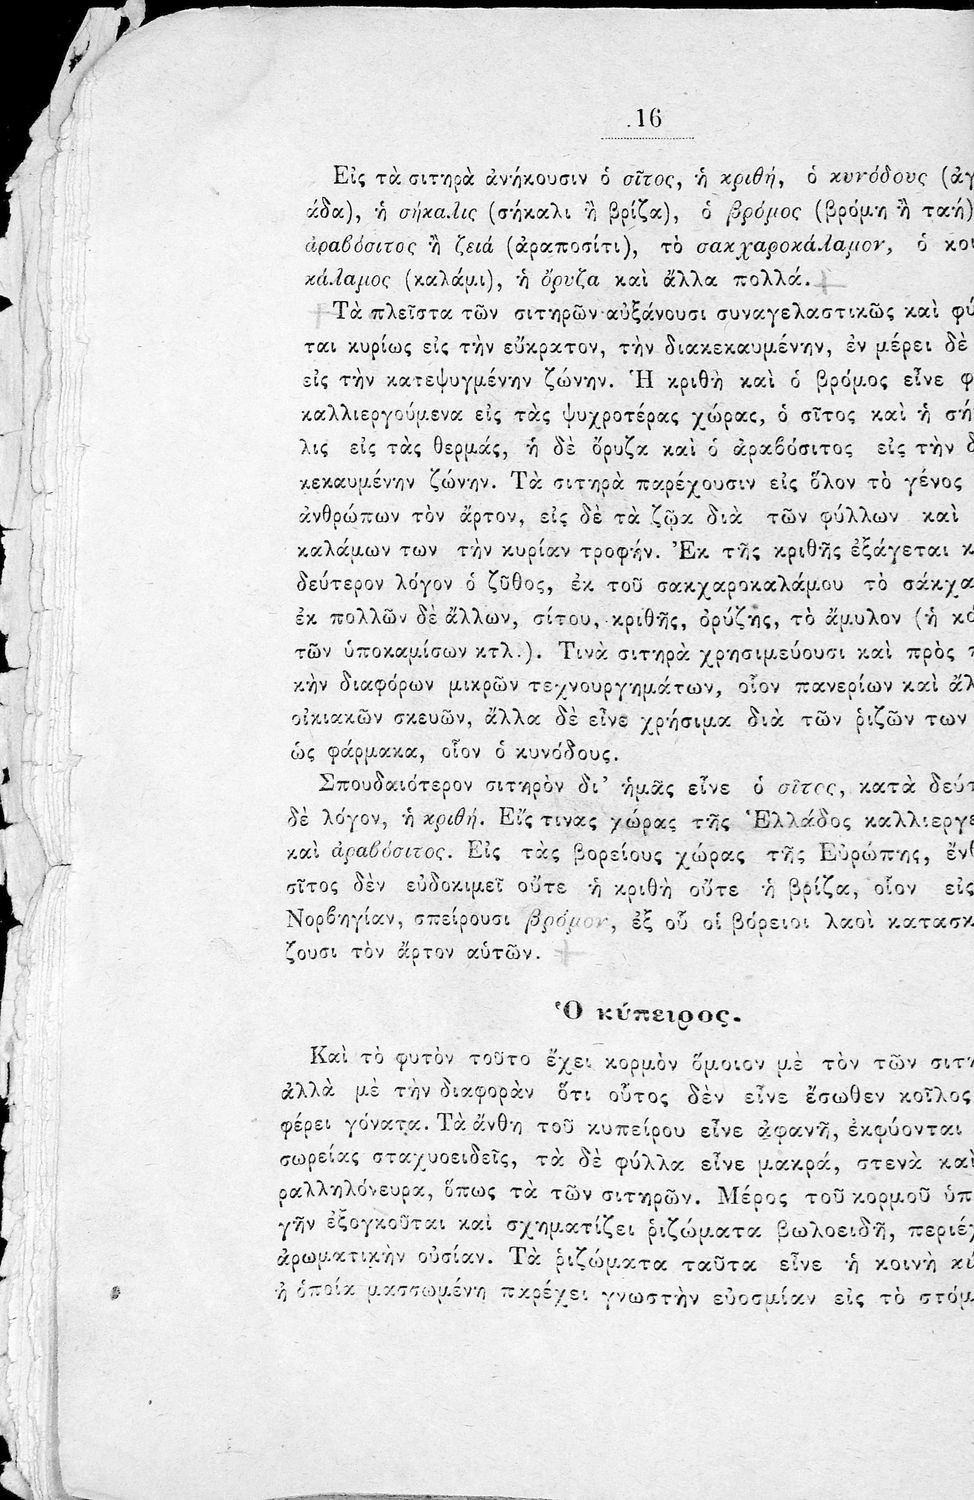 16
Εἰς τὰ σιτηρὰ ἀνήκουσιν ὁ σῖτος, ἡ κριθή, ὁ κυνόδους (ἀγ
άδα), ἡ σήκαλις (σήκαλι ἢ βρίζα), ὁ βρόμος (βρόμη ἢ ταή)
ἀραβόσιτος ἢ ζειά (ἀραποσίτι), τὸ σακχαροκάλαμον, ὁ κοι
κάλαμος (καλάμι), ἡ ὄρυζα καὶ ἄλλα πολλά.
Τὰ πλεῖστα τῶν σιτηρῶν αὐξάνουσι συναγελαστικῶς καὶ φύ
ται κυρίως εἰς τὴν εὔκρατον, τὴν διακεκαυμένην, ἐν μέρει δὲ
εἰς τὴν κατεψυγμένην ζώνην. Ἡ κριθὴ καὶ ὁ βρόμος εἶνε φ
καλλιεργούμενα εἰς τὰς ψυχροτέρας χώρας, ὁ σῖτος καὶ ἡ σή
λις εἰς τὰς θερμάς, ἡ δὲ ὄρυζα καὶ ὁ ἀραβόσιτος εἰς τὴν δ
κεκαυμένην ζώνην. Τὰ σιτηρὰ παρέχουσιν εἰς ὅλον τὸ γένος
ἀνθρώπων τὸν ἄρτον, εἰς δὲ τὰ ζῷα διὰ τῶν φύλλων καὶ
καλάμων των τὴν κυρίαν τροφήν. Ἐκ τῆς κριθῆς ἐξάγεται κ
δεύτερον λόγον ὁ ζῦθος, ἐκ τοῦ σακχαροκαλάμου τὸ σάκχα
ἐκ πολλῶν δὲ ἄλλων, σίτου, κριθῆς, ὀρύζης, τὸ ἄμυλον (ἡ κό
τῶν ὑποκαμίσων κτλ.). Τινὰ σιτηρὰ χρησιμεύουσι καὶ πρὸς
κὴν διαφόρων μικρῶν τεχνουργημάτων, οἷον πανερίων καὶ ἄλ
οἰκιακῶν σκευῶν, ἄλλα δὲ εἶνε χρήσιμα διὰ τῶν ῥιζῶν των
ὡς φάρμακα, οἷον ὁ κυνόδους.
Σπουδαιότερον σιτηρὸν δι' ἡμᾶς εἶνε ὁ σῖτος, κατὰ δεύτ
δὲ λόγον, ἡ κριθή. Εἴς τινας χώρας τῆς Ἑλλάδος καλλιεργε
καὶ ἀραβόσιτος. Εἰς τὰς βορείους χώρας τῆς Εὐρώπης, ἔνθ
σῖτος δὲν εὐδοκιμεῖ οὔτε ἡ κριθὴ οὔτε ἡ βρίζα, οἷον εἰς
Νορβηγίαν, σπείρουσι βρόμον, ἐξ οὗ οἱ βόρειοι λαοὶ κατασκ
ζουσι τὸν ἄρτον αὑτῶν.
Ὁ κύπειρος.
Καὶ τὸ φυτὸν τοῦτο ἔχει κορμὸν ὅμοιον μὲ τὸν τῶν σιτη
ἀλλὰ μὲ τὴν διαφορὰν ὅτι οὗτος δὲν εἶνε ἔσωθεν κοῖλος
φέρει γόνατα. Τὰ ἄνθη τοῦ κυπείρου εἶνε ἀφανῆ, ἐκφύονται
σωρείας σταχυοειδεῖς, τὰ δὲ φύλλα εἶνε μακρά, στενὰ καὶ
ραλληλόνευρα, ὅπως τὰ τῶν σιτηρῶν. Μέρος τοῦ κορμοῦ ὑπ
γῆν ἐξογκοῦται καὶ σχηματίζει ῥιζώματα βωλοειδῆ, περιέχ
ἀρωματικὴν οὐσίαν. Τὰ ῥιζώματα ταῦτα εἶνε ἡ κοινὴ κύ
ἡ ὁποία μασσωμένη παρέχει γνωστὴν εὐοσμίαν εἰς τὸ στόμ